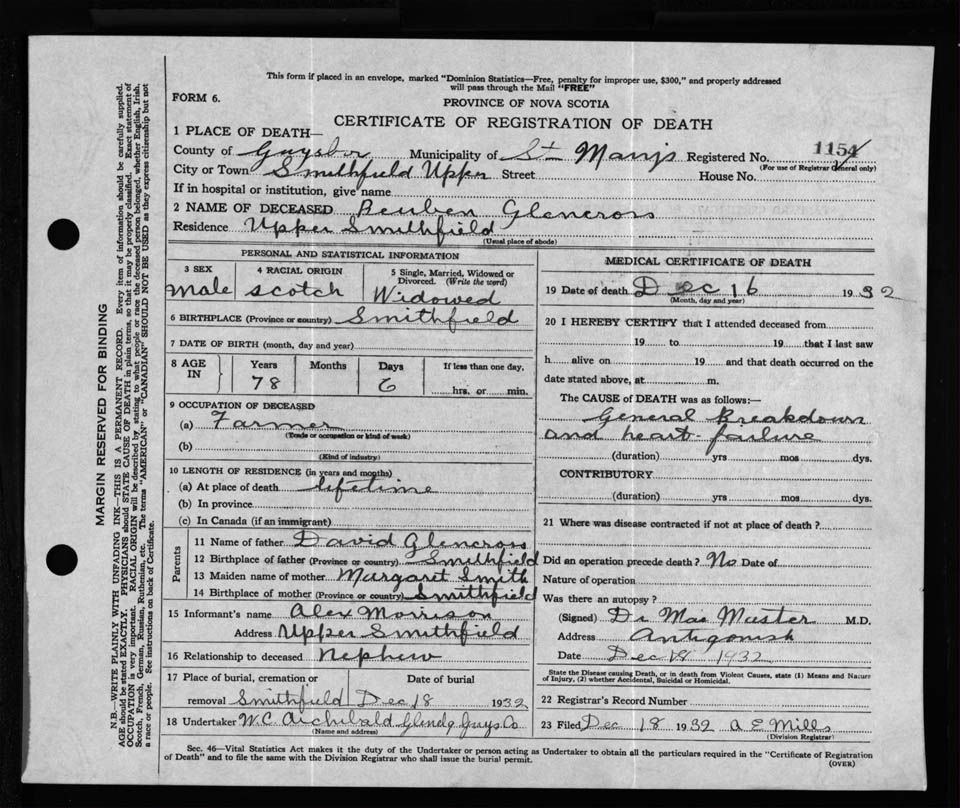 This form if placed in an envelope, marked "Dominion Statistics—Free, penalty for improper use, $300," and properly addressed
will pass through the Mail "FREE"
FORM 6.
PROVINCE OF NOVA SCOTIA
CERTIFICATE OF REGISTRATION OF DEATH
1 PLACE OF DEATH—
County of Guysbor Municipality of St Marys Registered No. 1154
City or Town Smithfield Upper Street House No. (For use of Registrar General only)
If in hospital or institution, give name
2 NAME OF DECEASED Reuben Glencross
Residence Upper Smithfield
(Usual place of abode)
PERSONAL AND STATISTICAL INFORMATION
3 SEX 4 RACIAL ORIGIN 5 Single, Married, Widowed or Divorced. (Write the word)
male scotch Widowed
6 BIRTHPLACE (Province or country) Smithfield
7 DATE OF BIRTH (month, day and year)
8 AGE IN Years Months Days If less than one day,
78 6 hrs. or min.
9 OCCUPATION OF DECEASED
(a) Farmer
(Trade or occupation or kind of work)
(b)
(Kind of industry)
10 LENGTH OF RESIDENCE (in years and months)
(a) At place of death lifetime
(b) In province
(c) In Canada (if an immigrant)
Parents
11 Name of father David Glencross
12 Birthplace of father (Province or country) Smithfield
13 Maiden name of mother Margaret Smith
14 Birthplace of mother (Province or country) Smithfield
15 Informant's name Alex Morrison
Address Upper Smithfield
16 Relationship to deceased Nephew
17 Place of burial, cremation or Date of burial
removal Smithfield Dec 18 1932
18 Undertaker W.C. Archibald Glenelg Guys. Co
(Name and address)
MEDICAL CERTIFICATE OF DEATH
19 Date of death Dec 16 1932
(Month, day and year)
20 I HEREBY CERTIFY that I attended deceased from
19 to 19 that I last saw
h alive on 19 and that death occurred on the
date stated above, at m.
The CAUSE of DEATH was as follows:—
General Breakdown
and heart-failure
(duration) yrs mos dys.
CONTRIBUTORY
(duration) yrs mos dys.
21 Where was disease contracted if not at place of death?
Did an operation precede death? No Date of
Nature of operation
Was there an autopsy?
(Signed) Dr M.D.
Address Antigonish
Date Dec 18 1932
State the Disease causing Death, or in death from Violent Causes, state (1) Means and Nature
of Injury, (2) whether Accidental, Suicidal or Homicidal.
22 Registrar's Record Number
23 Filed Dec 18 1932 A E Mills
(Division Registrar)
Sec. 46—Vital Statistics Act makes it the duty of the Undertaker or person acting as Undertaker to obtain all the particulars required in the "Certificate of Registration
of Death" and to file the same with the Division Registrar who shall issue the burial permit.
(OVER)
MARGIN RESERVED FOR BINDING
N.B.—WRITE PLAINLY WITH UNFADING INK—THIS IS A PERMANENT RECORD. Every item of information should be carefully supplied.
AGE should be stated EXACTLY. PHYSICIANS should STATE CAUSE OF DEATH in plain terms, so that it may be properly classified. Exact statement of
OCCUPATION is very important. RACIAL ORIGIN will be described by stating to what people or race the deceased person belonged, whether English, Irish,
Scotch, French, German, Russian, Ruthenian, etc. The terms "AMERICAN" or "CANADIAN" SHOULD NOT BE USED as they express citizenship but not
a race or people. See instructions on back of Certificate.